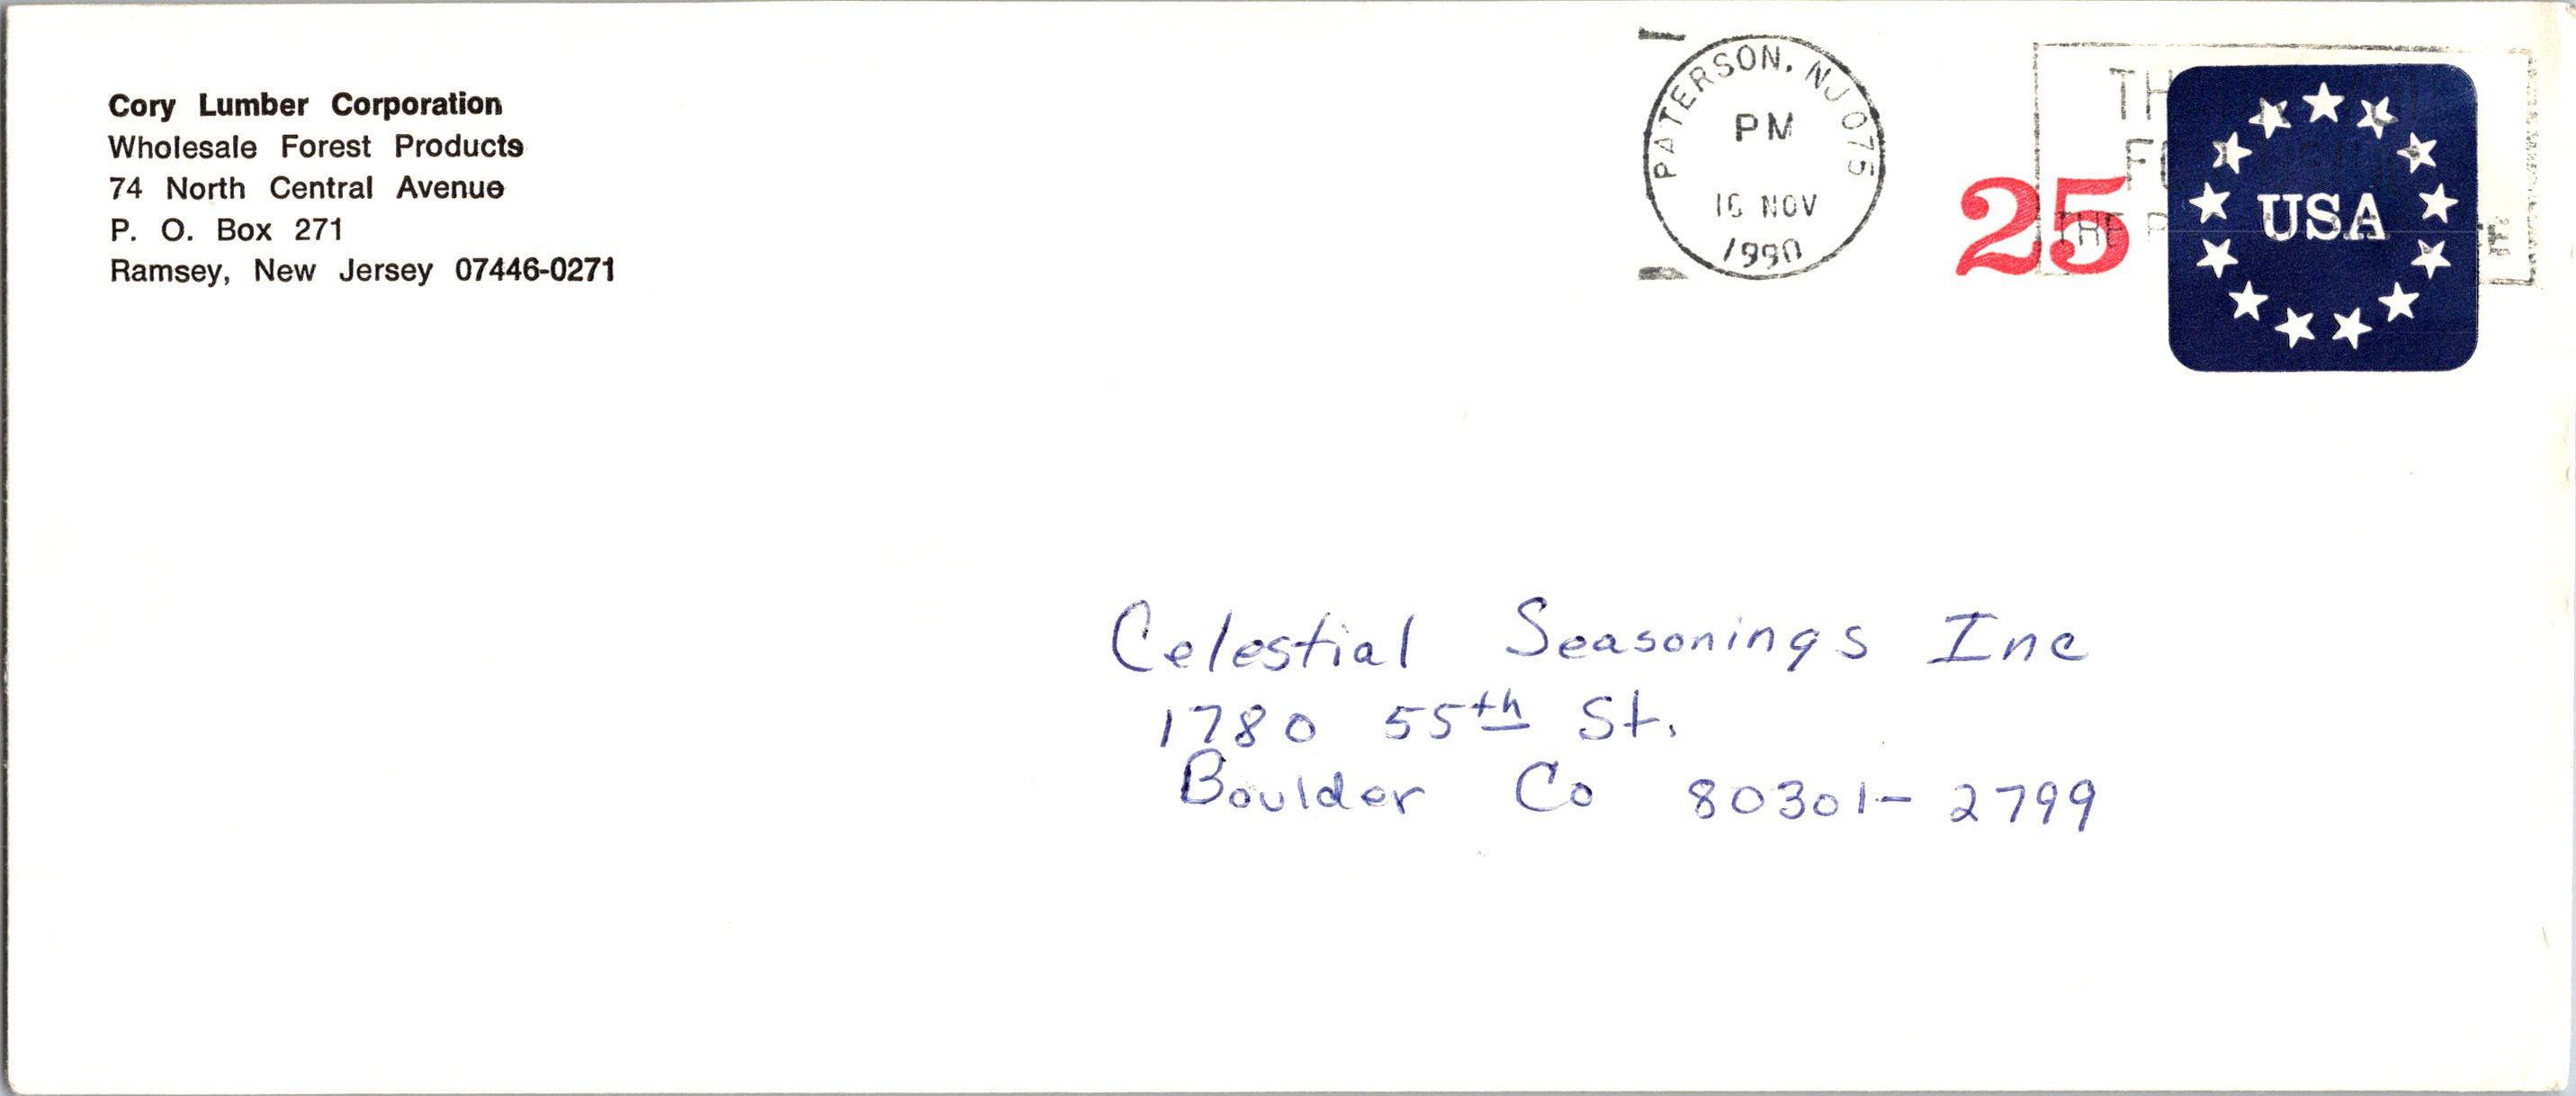 Cory Lumber Corporation
Wholesale Forest Products
74 North Central Avenue
P. O. Box 271
Ramsey, New Jersey 07446-0271
PATERSON, NJ 075
PM
NOV
1990
25
USA
THE
Celestial Seasonings Inc
1780 55th St.
Boulder Co 80301-2799